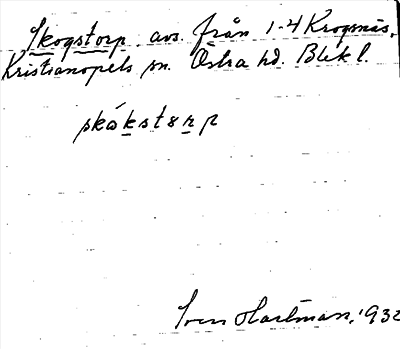 Skogstorp avs. från 1-4 Krogsnäs,
Kristianopels sn. Östra hd. Blek l.
skȯkst8rp
Sven Hartman, 1932